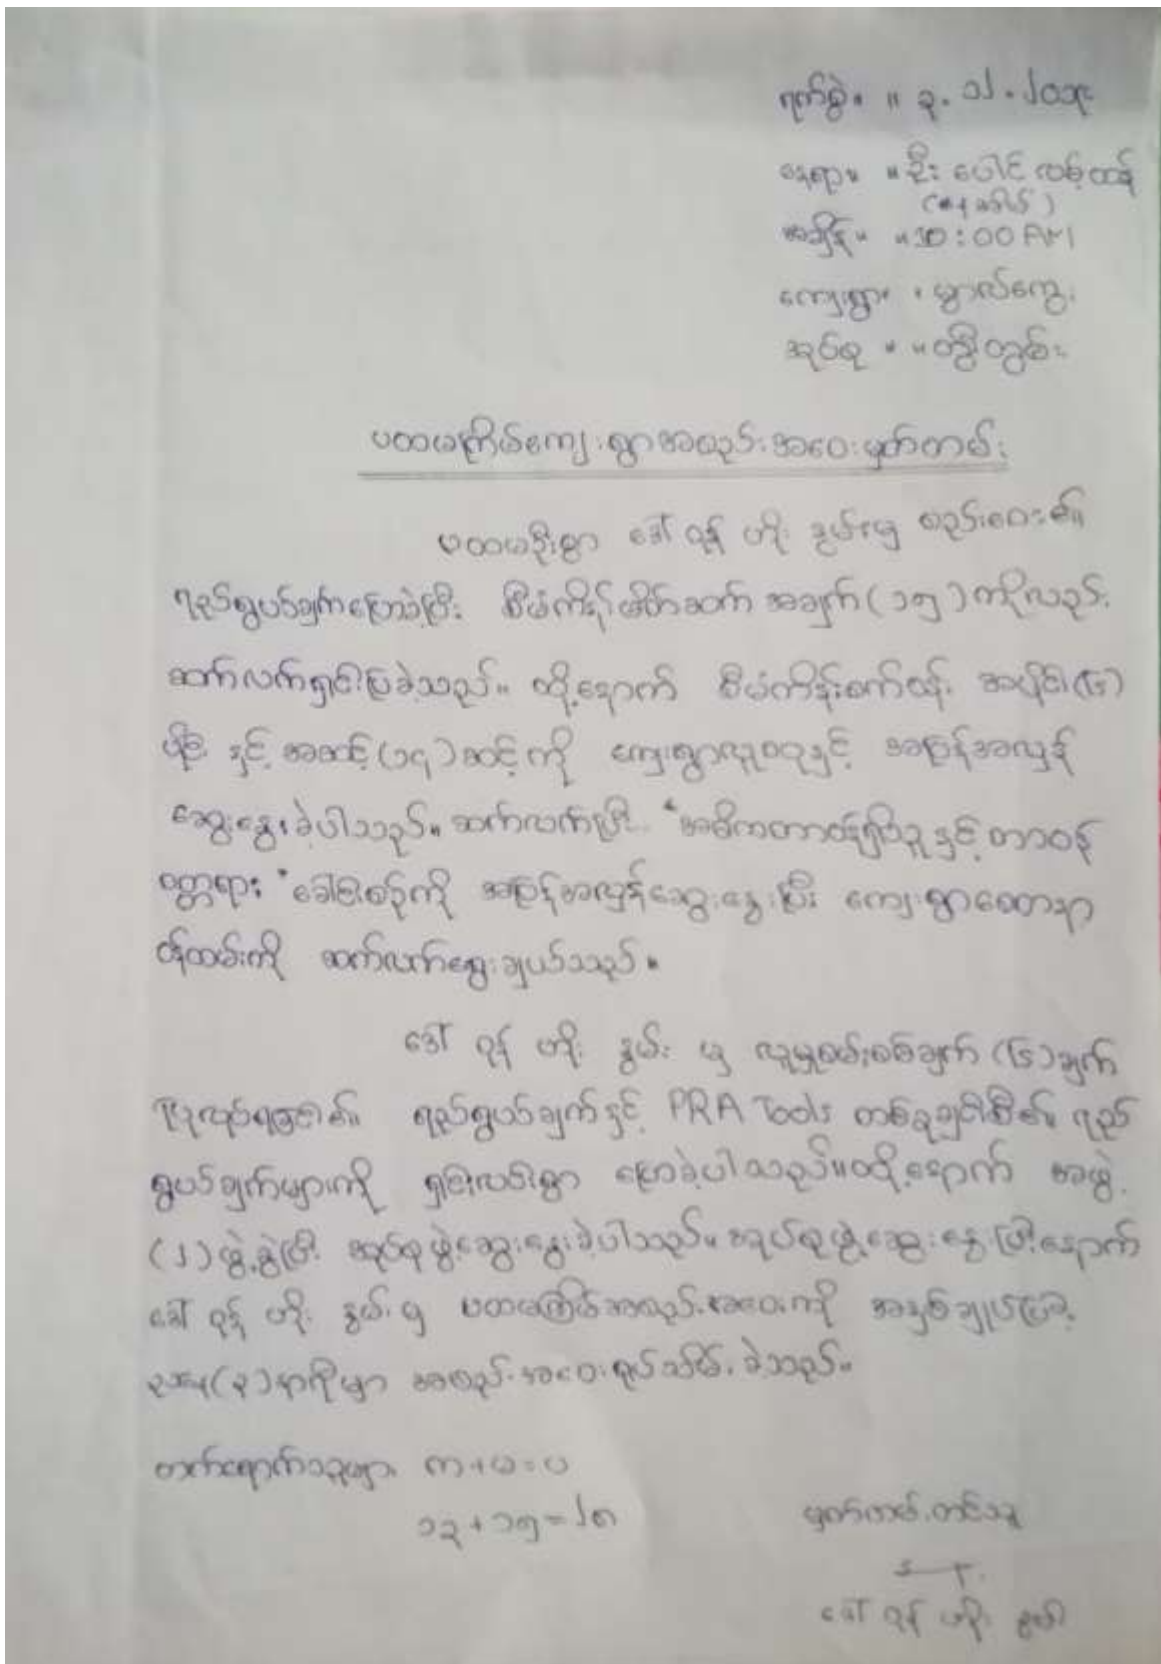 ရက်စွဲ။ ။ ၃. ၁၂. ၂၀၁၉
နေရာ။ ။ ဦးပေါင်လမ့်ထန်
(နေအိမ်)
အချိန်။ ။ 10:00 AM
ကျေးရွာ။ ။ မွာလ်ကွေး
အုပ်စု ။ ။ တွီးတွမ်း
ပထမအကြိမ်ကျေးရွာအစည်းအဝေးမှတ်တမ်း
ပထမဦးစွာ ဒေါ် ဇုန် ဟိုး နွမ်းမှ စည်းဝေး၏
ရည်ရွယ်ချက်ပြောခဲ့ပြီး စီမံကိန်းမိတ်ဆက် အချက် (၁၅) ကိုလည်း
ဆက်လက်ရှင်းပြခဲ့သည်။ ထို့နောက် စီမံကိန်းစက်ဝန်း အပိုင်း (၆)
ပိုင်း နှင့် အဆင့် (၁၄) ဆင့်ကို ကျေးရွာလူထုနှင့် အပြန်အလှန်
ဆွေးနွေးခဲ့ပါသည်။ ဆက်လက်ပြီး "အဓိကတာဝန်ရှိသူနှင့် တာဝန်
ဝတ္တရား" ခေါင်းစဉ်ကို အပြန်အလှန်ဆွေးနွေးပြီး ကျေးရွာစေတနာ့
ဝန်ထမ်းကို ဆက်လက်ရွေးချယ်သည်။
ဒေါ် ဇုန် ဟိုး နွမ်း မှ လူမှုစမ်းစစ်ချက် (၆) ချက်
ပြုလုပ်ရခြင်း၏ ရည်ရွယ်ချက်နှင့် PRA Tools တစ်ခုချင်းစီ၏ ရည်
ရွယ်ချက်များကို ရှင်းလင်းစွာ ပြောခဲ့ပါသည်။ ထို့နောက် အဖွဲ့
(၂) ဖွဲ့ခွဲပြီး အုပ်စုဖွဲ့ဆွေးနွေးခဲ့ပါသည်။ အုပ်စုဖွဲ့ဆွေးနွေးပြီးနောက်
ဒေါ် ဇုန် ဟိုး နွမ်း မှ ပထမအကြိမ်အစည်းအဝေးကို အနှစ်ချုပ်ပြီး
ညနေ (၃) နာရီမှာ အစည်းအဝေးရုပ်သိမ်းခဲ့သည်။
တက်ရောက်သူများ က + မ = ပ
၁၃ + ၁၅ = ၂၈
မှတ်တမ်းတင်သူ
ဒေါ် ဇုန် ဟိုး နွမ်း